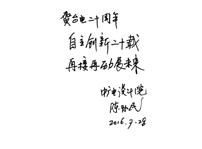 贺台电二十周年
自主创新二十载
再接再励展未来
中广电设计院
陈
2016.9.28